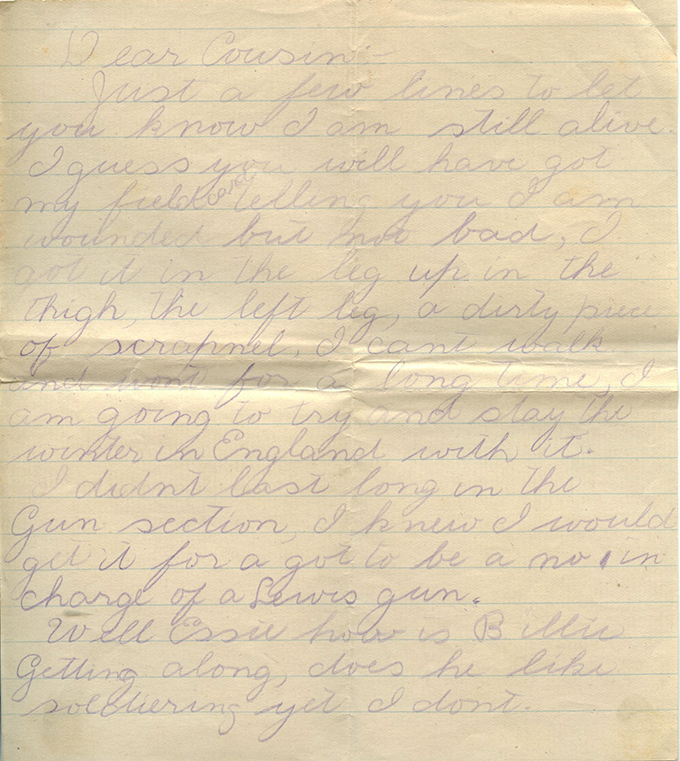 Dear Cousin:-
Just a few lines to let
you know I am still alive.
I guess you will have got
my field card telling you I am
wounded but not bad, I
got it in the leg up in the
thigh, the left leg, a dirty piece
of scrapnel, I cant walk
and wont for a long time, I
am going to try and stay the
winter in England with it.
I didnt last long in the
Gun section, I knew I would
get it for a got to be a no 1 in
charge of a Lewis gun.
Well Essie how is Billie
Getting along, does he like
soldiering yet I dont.